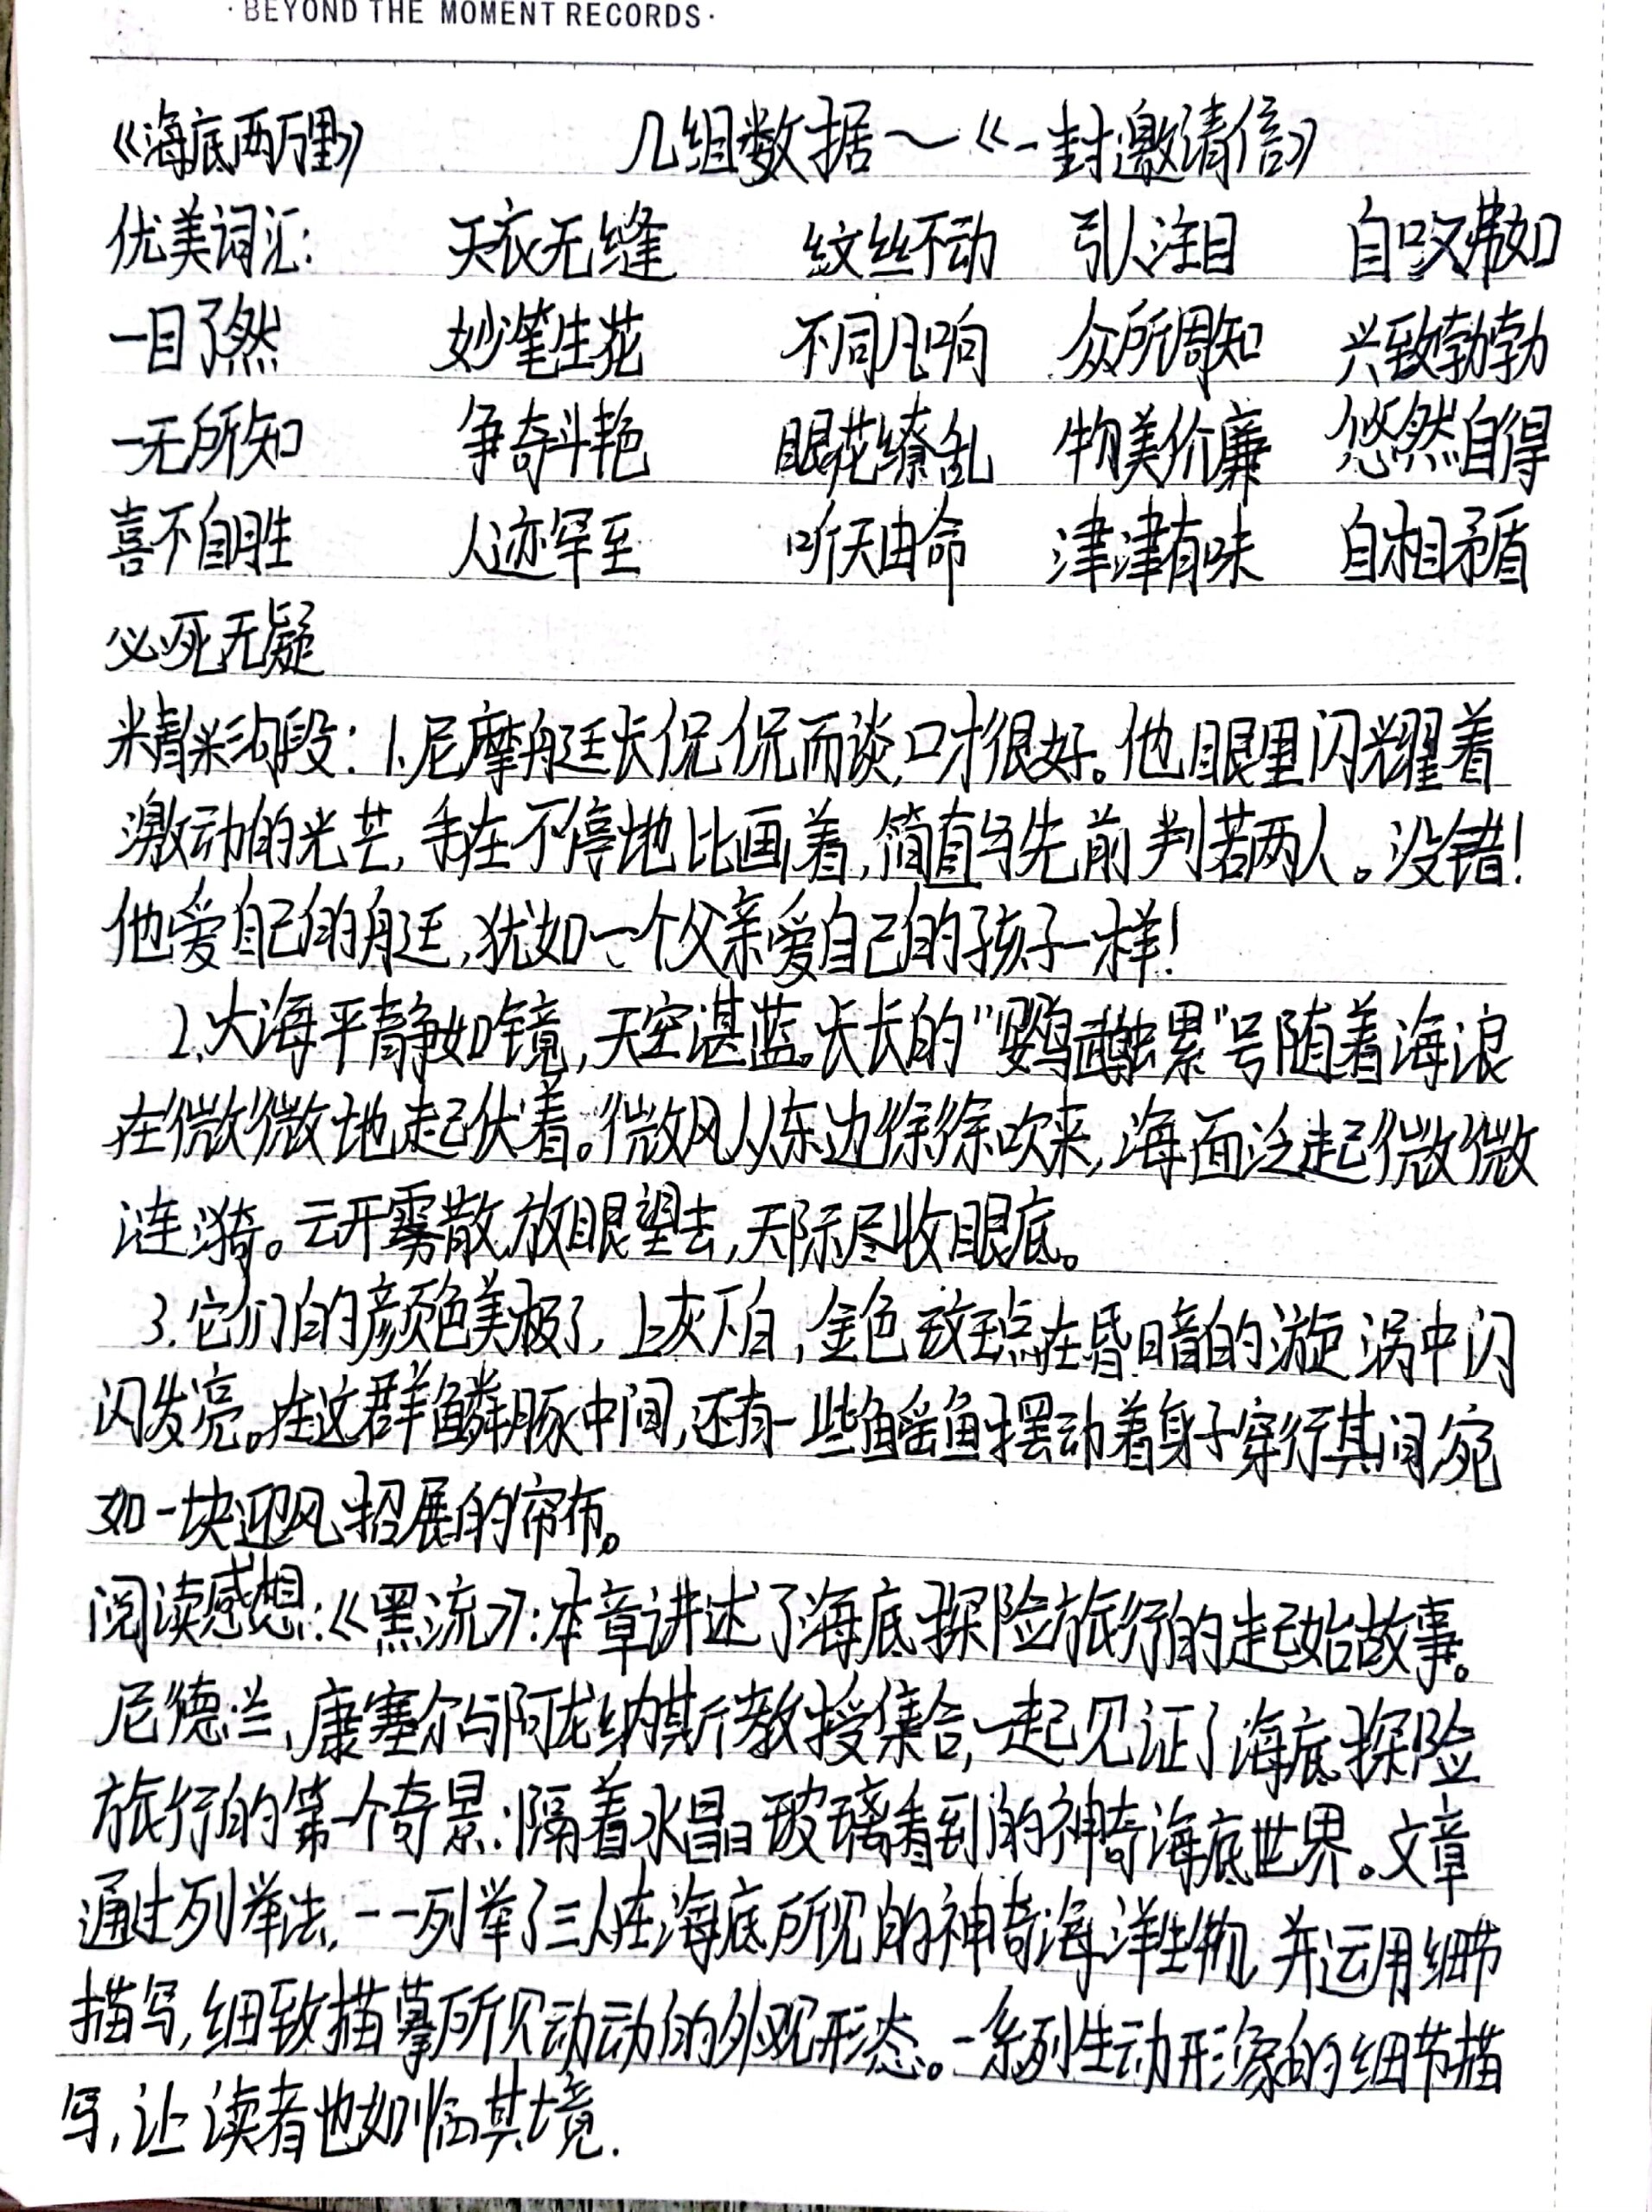 · BEYOND THE MOMENT RECORDS ·
《海底两万里》 几组数据～《一封邀请信》
优美词汇： 天衣无缝 纹丝不动 引人注目 自叹弗如
一目了然 妙笔生花 不同凡响 众所周知 兴致勃勃
一无所知 争奇斗艳 眼花缭乱 物美价廉 悠然自得
喜不自胜 人迹罕至 听天由命 津津有味 自相矛盾
必死无疑
精彩句段：1.尼摩艇长侃侃而谈,口才很好。他眼里闪耀着
激动的光芒,手在不停地比画着,简直与先前判若两人。没错!
他爱自己的艇,犹如一个父亲爱自己的孩子一样!
2.大海平静如镜,天空湛蓝。长长的"鹦鹉螺"号随着海浪
在微微地起伏着。微风从东边徐徐吹来,海面泛起微微
涟漪。云开雾散,放眼望去,天际尽收眼底。
3.它们的颜色美极了,上灰下白,金色斑点在昏暗的漩涡中闪
闪发亮。在这群鳞豚中间,还有一些鳐鱼摆动着身子穿行其间,宛
如一块迎风招展的帘布。
阅读感想：《黑流》：本章讲述了海底探险旅行的起始故事。
尼德兰、康塞尔与阿龙纳斯教授集合,一起见证了海底探险
旅行的第一个奇景：隔着水晶玻璃看到的神奇海底世界。文章
通过列举法,一一列举了三人在海底所见的神奇海洋生物,并运用细节
描写,细致描摹所见动动的外观形态。一系列生动形象的细节描
写,让读者也如临其境.